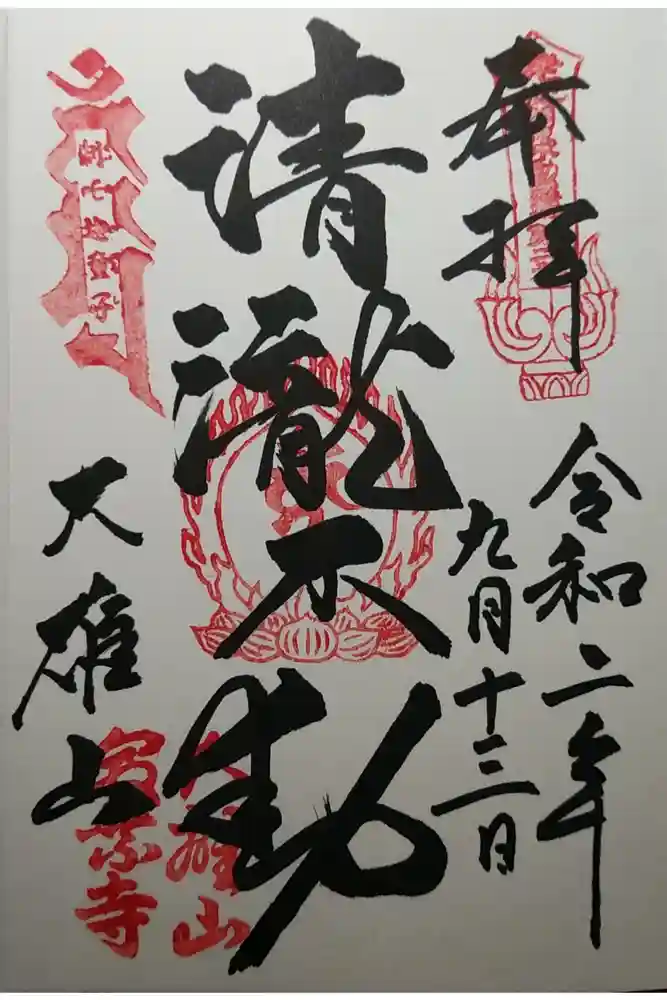 奉拝
令和二年
九月十三日
清瀧不動
大雄山
大雄山
最乗寺